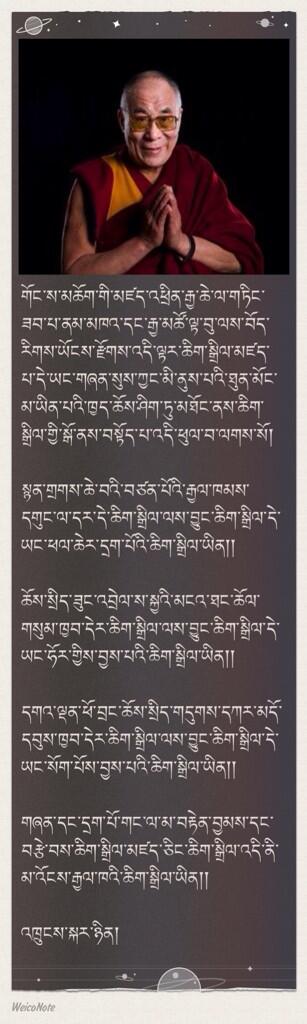 གོང་ས་མཆོག་གི་མཛད་འཕྲིན་རྒྱ་ཆེ་ལ་གཏིང་
ཟབ་པ་ནམ་མཁའ་དང་རྒྱ་མཚོ་ལྟ་བུ་ལས་བོད་
རིགས་ཡོངས་རྫོགས་འདི་ལྟར་ཆིག་སྒྲིལ་མཛད་
པ་དེ་ཡང་གཞན་སུས་ཀྱང་མི་ནུས་པའི་ཐུན་མོང་
མ་ཡིན་པའི་ཁྱད་ཆོས་ཤིག་ཏུ་མཐོང་ནས་ཆིག་
སྒྲིལ་གྱི་སྒོ་ནས་བསྟོད་པ་འདི་ཕུལ་བ་ལགས་སོ།
སྙན་གྲགས་ཆེ་བའི་བཙན་པོའི་རྒྱལ་ཁམས་
དགུང་ལ་དར་དེ་ཆིག་སྒྲིལ་ལས་བྱུང་ཆིག་སྒྲིལ་དེ་
ཡང་ཕལ་ཆེར་དྲག་པོའི་ཆིག་སྒྲིལ་ཡིན།།
ཆོས་སྲིད་ཟུང་འབྲེལ་ས་སྐྱའི་མངའ་ཐང་ཆོལ་
གསུམ་ཁྱབ་དེར་ཆིག་སྒྲིལ་ལས་བྱུང་ཆིག་སྒྲིལ་དེ་
ཡང་ཧོར་གྱིས་བྱས་པའི་ཆིག་སྒྲིལ་ཡིན།།
དགའ་ལྡན་ཕོ་བྲང་ཆོས་སྲིད་གདུགས་དཀར་མདོ་
དབུས་ཁྱབ་དེར་ཆིག་སྒྲིལ་ལས་བྱུང་ཆིག་སྒྲིལ་དེ་
ཡང་སོག་པོས་བྱས་པའི་ཆིག་སྒྲིལ་ཡིན།།
གཞན་དང་དྲག་པོ་གང་ལ་མ་བརྟེན་བྱམས་དང་
བརྩེ་བས་ཆིག་སྒྲིལ་མཛད་ཅིང་ཆིག་སྒྲིལ་འདི་ནི་
མ་འོངས་རྒྱལ་ཁའི་ཆིག་སྒྲིལ་ཡིན།།
འཁྲུངས་སྐར་ཉིན།
WeicoNote